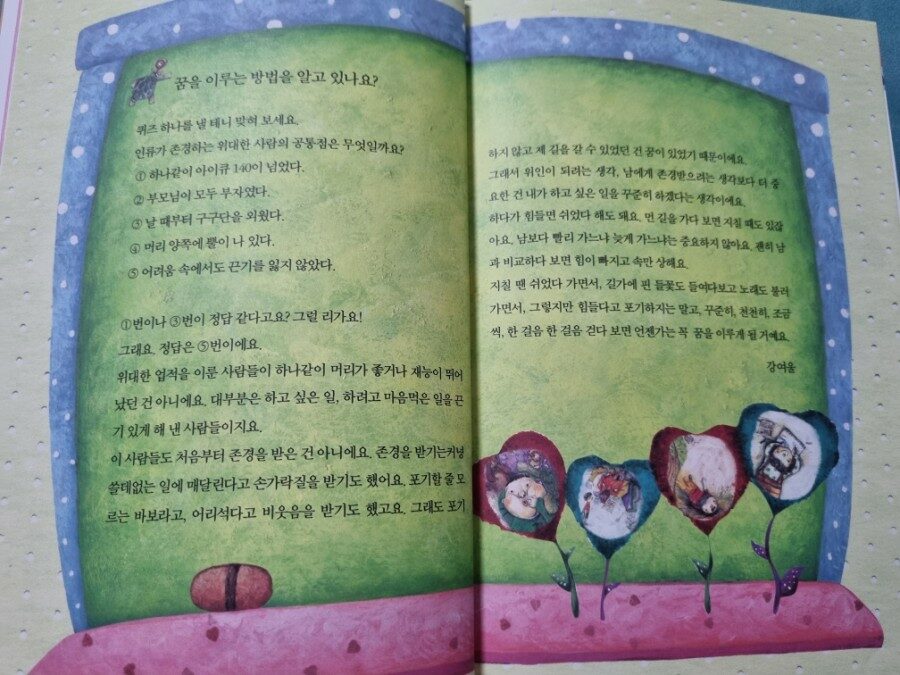 꿈을 이루는 방법을 알고 있나요?
퀴즈 하나를 낼 테니 맞혀 보세요.
인류가 존경하는 위대한 사람의 공통점은 무엇일까요?
① 하나같이 아이큐 140이 넘었다.
② 부모님이 모두 부자였다.
③ 날 때부터 구구단을 외웠다.
④ 머리 양쪽에 뿔이 나 있다.
⑤ 어려움 속에서도 끈기를 잃지 않았다.
①번이나 ③번이 정답 같다고요? 그럴 리가요!
그래요. 정답은 ⑤번이에요.
위대한 업적을 이룬 사람들이 하나같이 머리가 좋거나 재능이 뛰어
났던 건 아니에요. 대부분은 하고 싶은 일, 하려고 마음먹은 일을 끈
기 있게 해 낸 사람들이지요.
이 사람들도 처음부터 존경을 받은 건 아니에요. 존경을 받기는커녕
쓸데없는 일에 매달린다고 손가락질을 받기도 했어요. 포기할 줄 모
르는 바보라고, 어리석다고 비웃음을 받기도 했고요. 그래도 포기
하지 않고 제 길을 갈 수 있었던 건 꿈이 있었기 때문이에요.
그래서 위인이 되려는 생각, 남에게 존경받으려는 생각보다 더 중
요한 건 내가 하고 싶은 일을 꾸준히 하겠다는 생각이에요.
하다가 힘들면 쉬었다 해도 돼요. 먼 길을 가다 보면 지칠 때도 있잖
아요. 남보다 빨리 가느냐 늦게 가느냐는 중요하지 않아요. 괜히 남
과 비교하다 보면 힘이 빠지고 속만 상해요.
지칠 땐 쉬었다 가면서, 길가에 핀 들꽃도 들여다보고 노래도 불러
가면서, 그렇지만 힘들다고 포기하지는 말고, 꾸준히, 천천히, 조금
씩, 한 걸음 한 걸음 걷다 보면 언젠가는 꼭 꿈을 이루게 될 거예요.
강여울